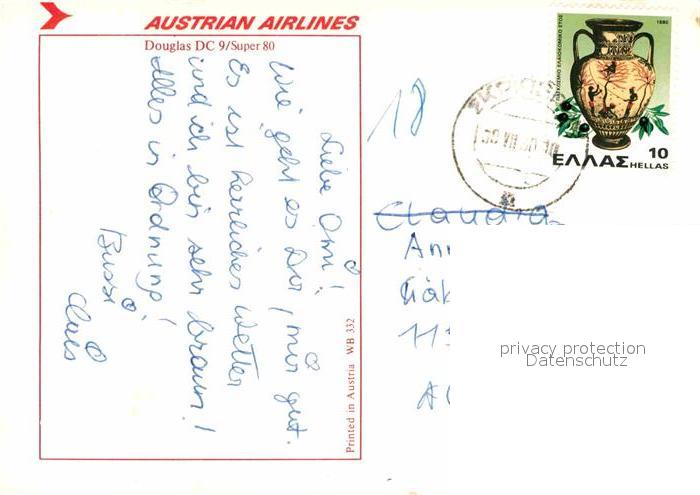 AUSTRIAN AIRLINES
Douglas DC 9/Super 80
Liebe Omi!
Wie geht es Dir, mir gut.
Es ist herrliches Wetter
und ich bin sehr braun!
Alles in Ordnung!
Bussi
Printed in Austria WB 332
18
1980
ΕΛΛΑΣ HELLAS 10
Claudia
Ann
113
privacy protection
Datenschutz